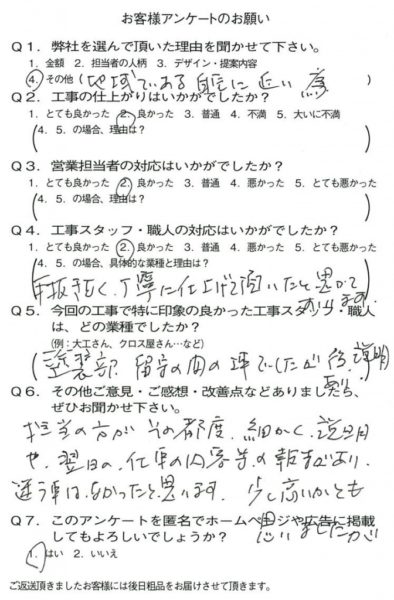 お客様アンケートのお願い
Q1．弊社を選んで頂いた理由を聞かせて下さい。
1．金額 2．担当者の人柄 3．デザイン・提案内容
4．その他（地域である自宅に近い為）
Q2．工事の仕上がりはいかがでしたか？
1．とても良かった 2．良かった 3．普通 4．不満 5．大いに不満
（4．5．の場合、理由は？
Q3．営業担当者の対応はいかがでしたか？
1．とても良かった 2．良かった 3．普通 4．悪かった 5．とても悪かった
（4．5．の場合、理由は？
Q4．工事スタッフ・職人の対応はいかがでしたか？
1．とても良かった 2．良かった 3．普通 4．悪かった 5．とても悪かった
（4．5．の場合、具体的な業種と理由は？
手抜きなく、丁寧に仕上げて頂いたと思って
おります。
Q5．今回の工事で特に印象の良かった工事スタッフ・職人
は、どの業種でしたか？
（例：大工さん、クロス屋さん…など）
（塗装部 留守の間の事でしたが 説明
有り、
Q6．その他ご意見・ご感想・改善点などありましたら、
ぜひお聞かせ下さい。
担当の方が その都度、細かく、説明
や、翌日の、仕事の内容等の報告があり、
違う事は、なかったと思います。 少し高いかとも
思いましたが
Q7．このアンケートを匿名でホームページや広告に掲載
してもよろしいでしょうか？
1．はい 2．いいえ
ご返送頂きましたお客様には後日粗品をお届けさせて頂きます。